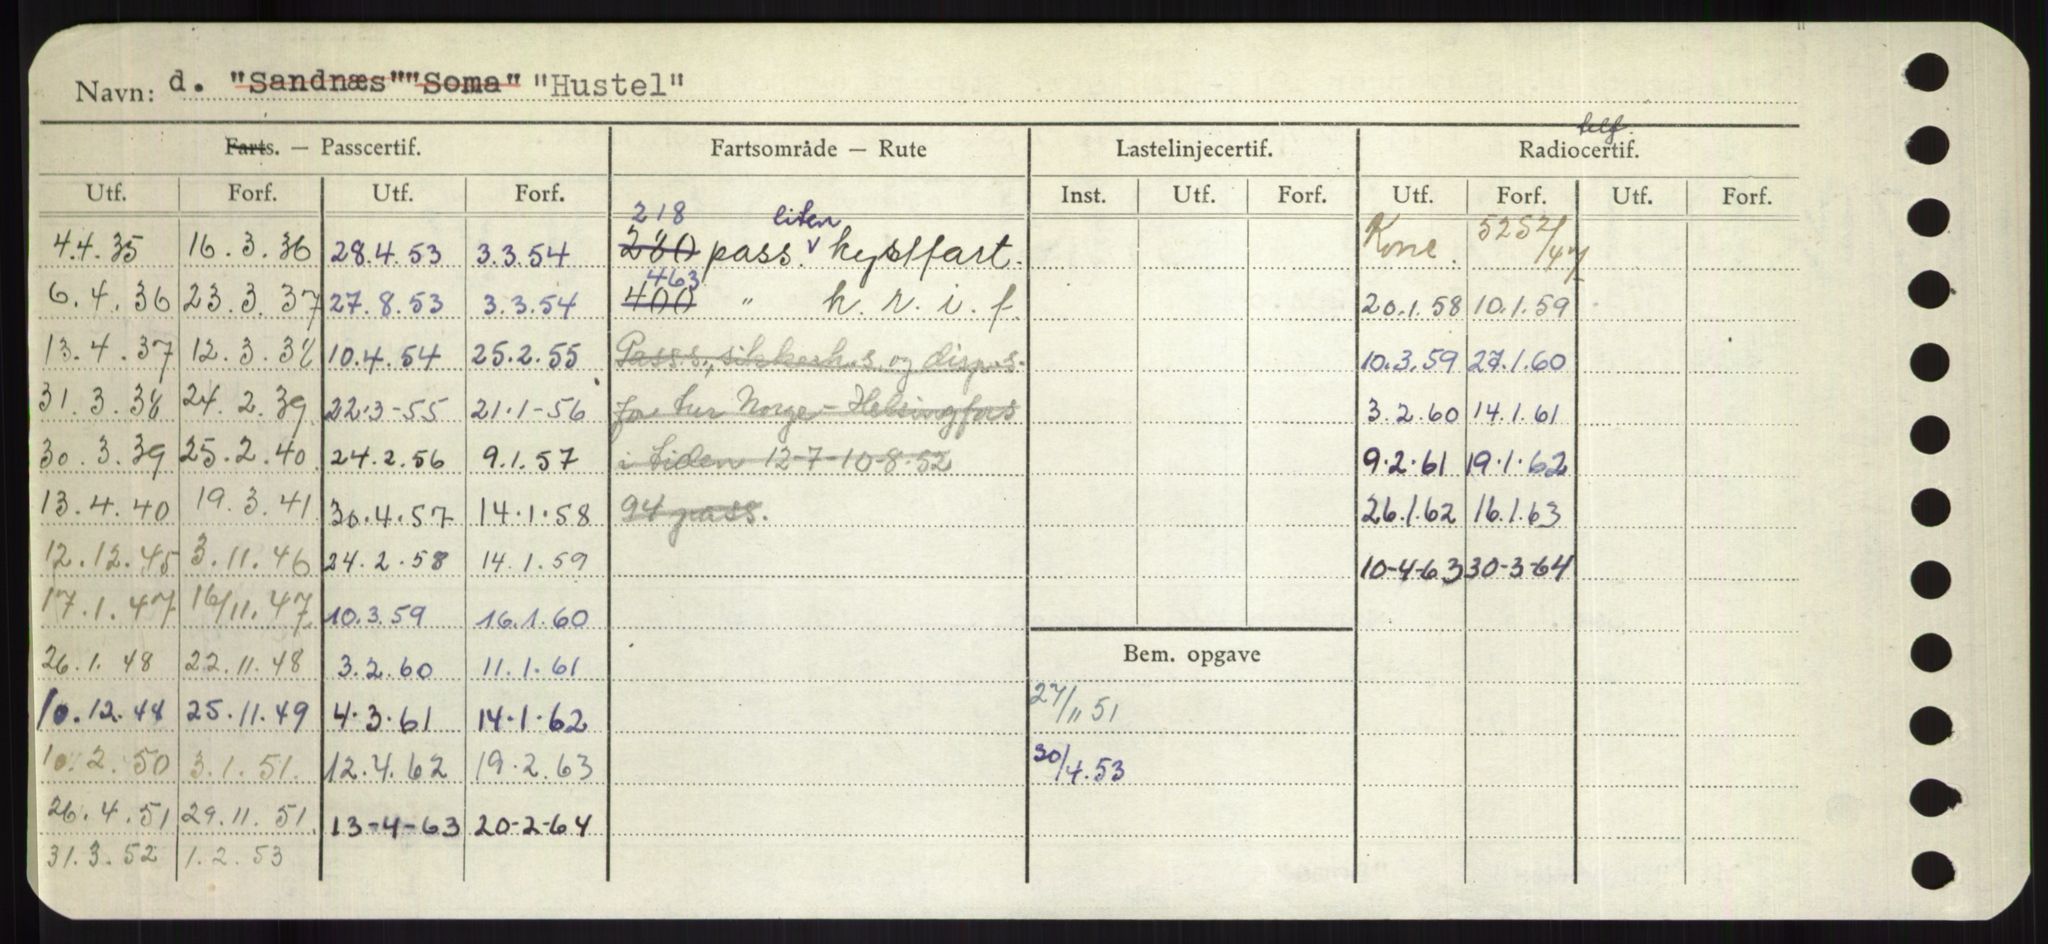 Navn: d. "Sandnæs" "Soma" "Hustel"
Farts. — Passcertif. Fartsområde — Rute Lastelinjecertif. telf. Radiocertif.
Utf. Forf. Utf. Forf. Inst. Utf. Forf. Utf. Forf. Utf. Forf.
218 liten
4.4.35 16.3.36 28.4.53 3.3.54 280 pass. v kystfart. 5252/47
463
6.4.36 23.3.37 27.8.53 3.3.54 400 " k. r. i. f. 20.1.58 10.1.59
13.4.37 12.3.38 10.4.54 25.2.55 Pass.s., sikkerh.s. og disp.s. 10.3.59 27.1.60
31.3.38 24.2.39 22.3-55 21.1-56 for tur Norge - Helsingfors 3.2.60 14.1.61
30.3.39 25.2.40 24.2.56 9.1.57 i tiden 12-7-10-8-52 9.2.61 19.1.62
13.4.40 19.3.41 30.4.57 14.1.58 94 pass. 26.1.62 16.1.63
12.12.45 3.11.46 24.2.58 14.1.59 10-4-63 30-3-64
17.1.47 16/11.47 10.3.59 16.1.60
26.1.48 22.11.48 3.2.60 11.1.61 Bem. opgave
10.12.48 25.11.49 4.3.61 14.1.62 27/11 51
10.2.50 3.1.51. 12.4.62 19.2.63 30/4.53
26.4.51 29.11.51. 13-4-63 20-2-64
31.3.52 1.2.53